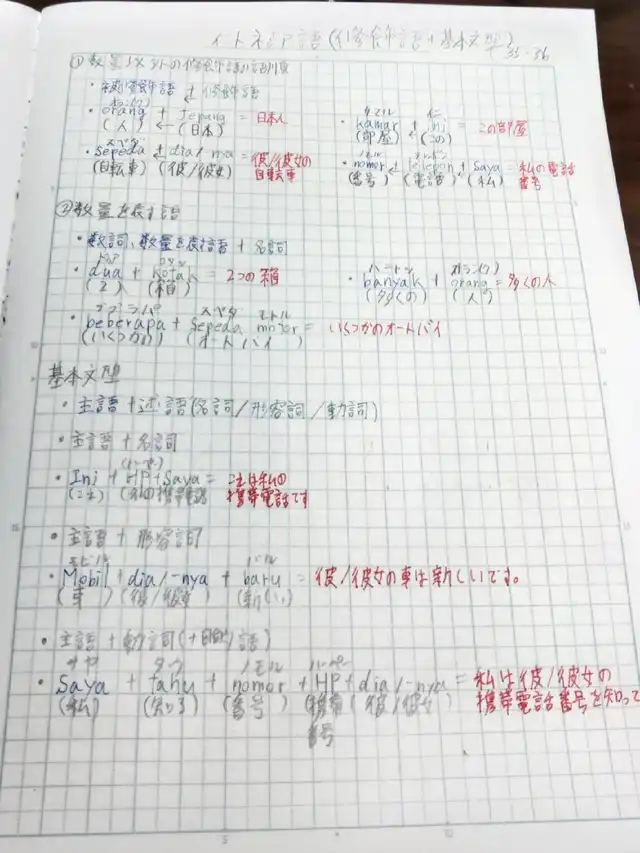 インドネシア語(修飾語+基本文型) 35-36
①数量以外の修飾語の語順
・被修飾語 ← 修飾語
オランク
・orang + Jepang = 日本人
(人) ← (日本)
カマル イニ
・kamar + ini = この部屋
(部屋) ← (この)
スペダ
・sepeda + dia/-nya = 彼/彼女の
(自転車) (彼/彼女) 自転車
・nomor + telepon + saya = 私の電話
(番号) (電話) (私) 番号
②数量を表す語
・数詞、数量を表す語 + 名詞
ドゥア コタッ
・dua + kotak = 2つの箱
(2) (箱)
オランク
・banyak + orang = 多くの人
(多くの) (人)
ブブラパ スペダ モトル
・beberapa + sepeda motor = いくつかのオートバイ
(いくつかの) (オートバイ)
基本文型
・主語+述語(名詞/形容詞/動詞)
・主語+名詞
・Ini + HP + Saya = これは私の
(これ) (私の携帯電話 携帯電話です
・主語+形容詞
モビル バル
・Mobil + dia/-nya + baru = 彼/彼女の車は新しいです。
(車) (彼/彼女) (新しい)
・主語+動詞(+目的語)
サヤ タウ ノモル ハーペー
・Saya + tahu + nomor + HP + dia/-nya = 私は彼/彼女の
(私) (知る) (番号) (携帯 (彼/彼女) 携帯電話番号を知って
番号